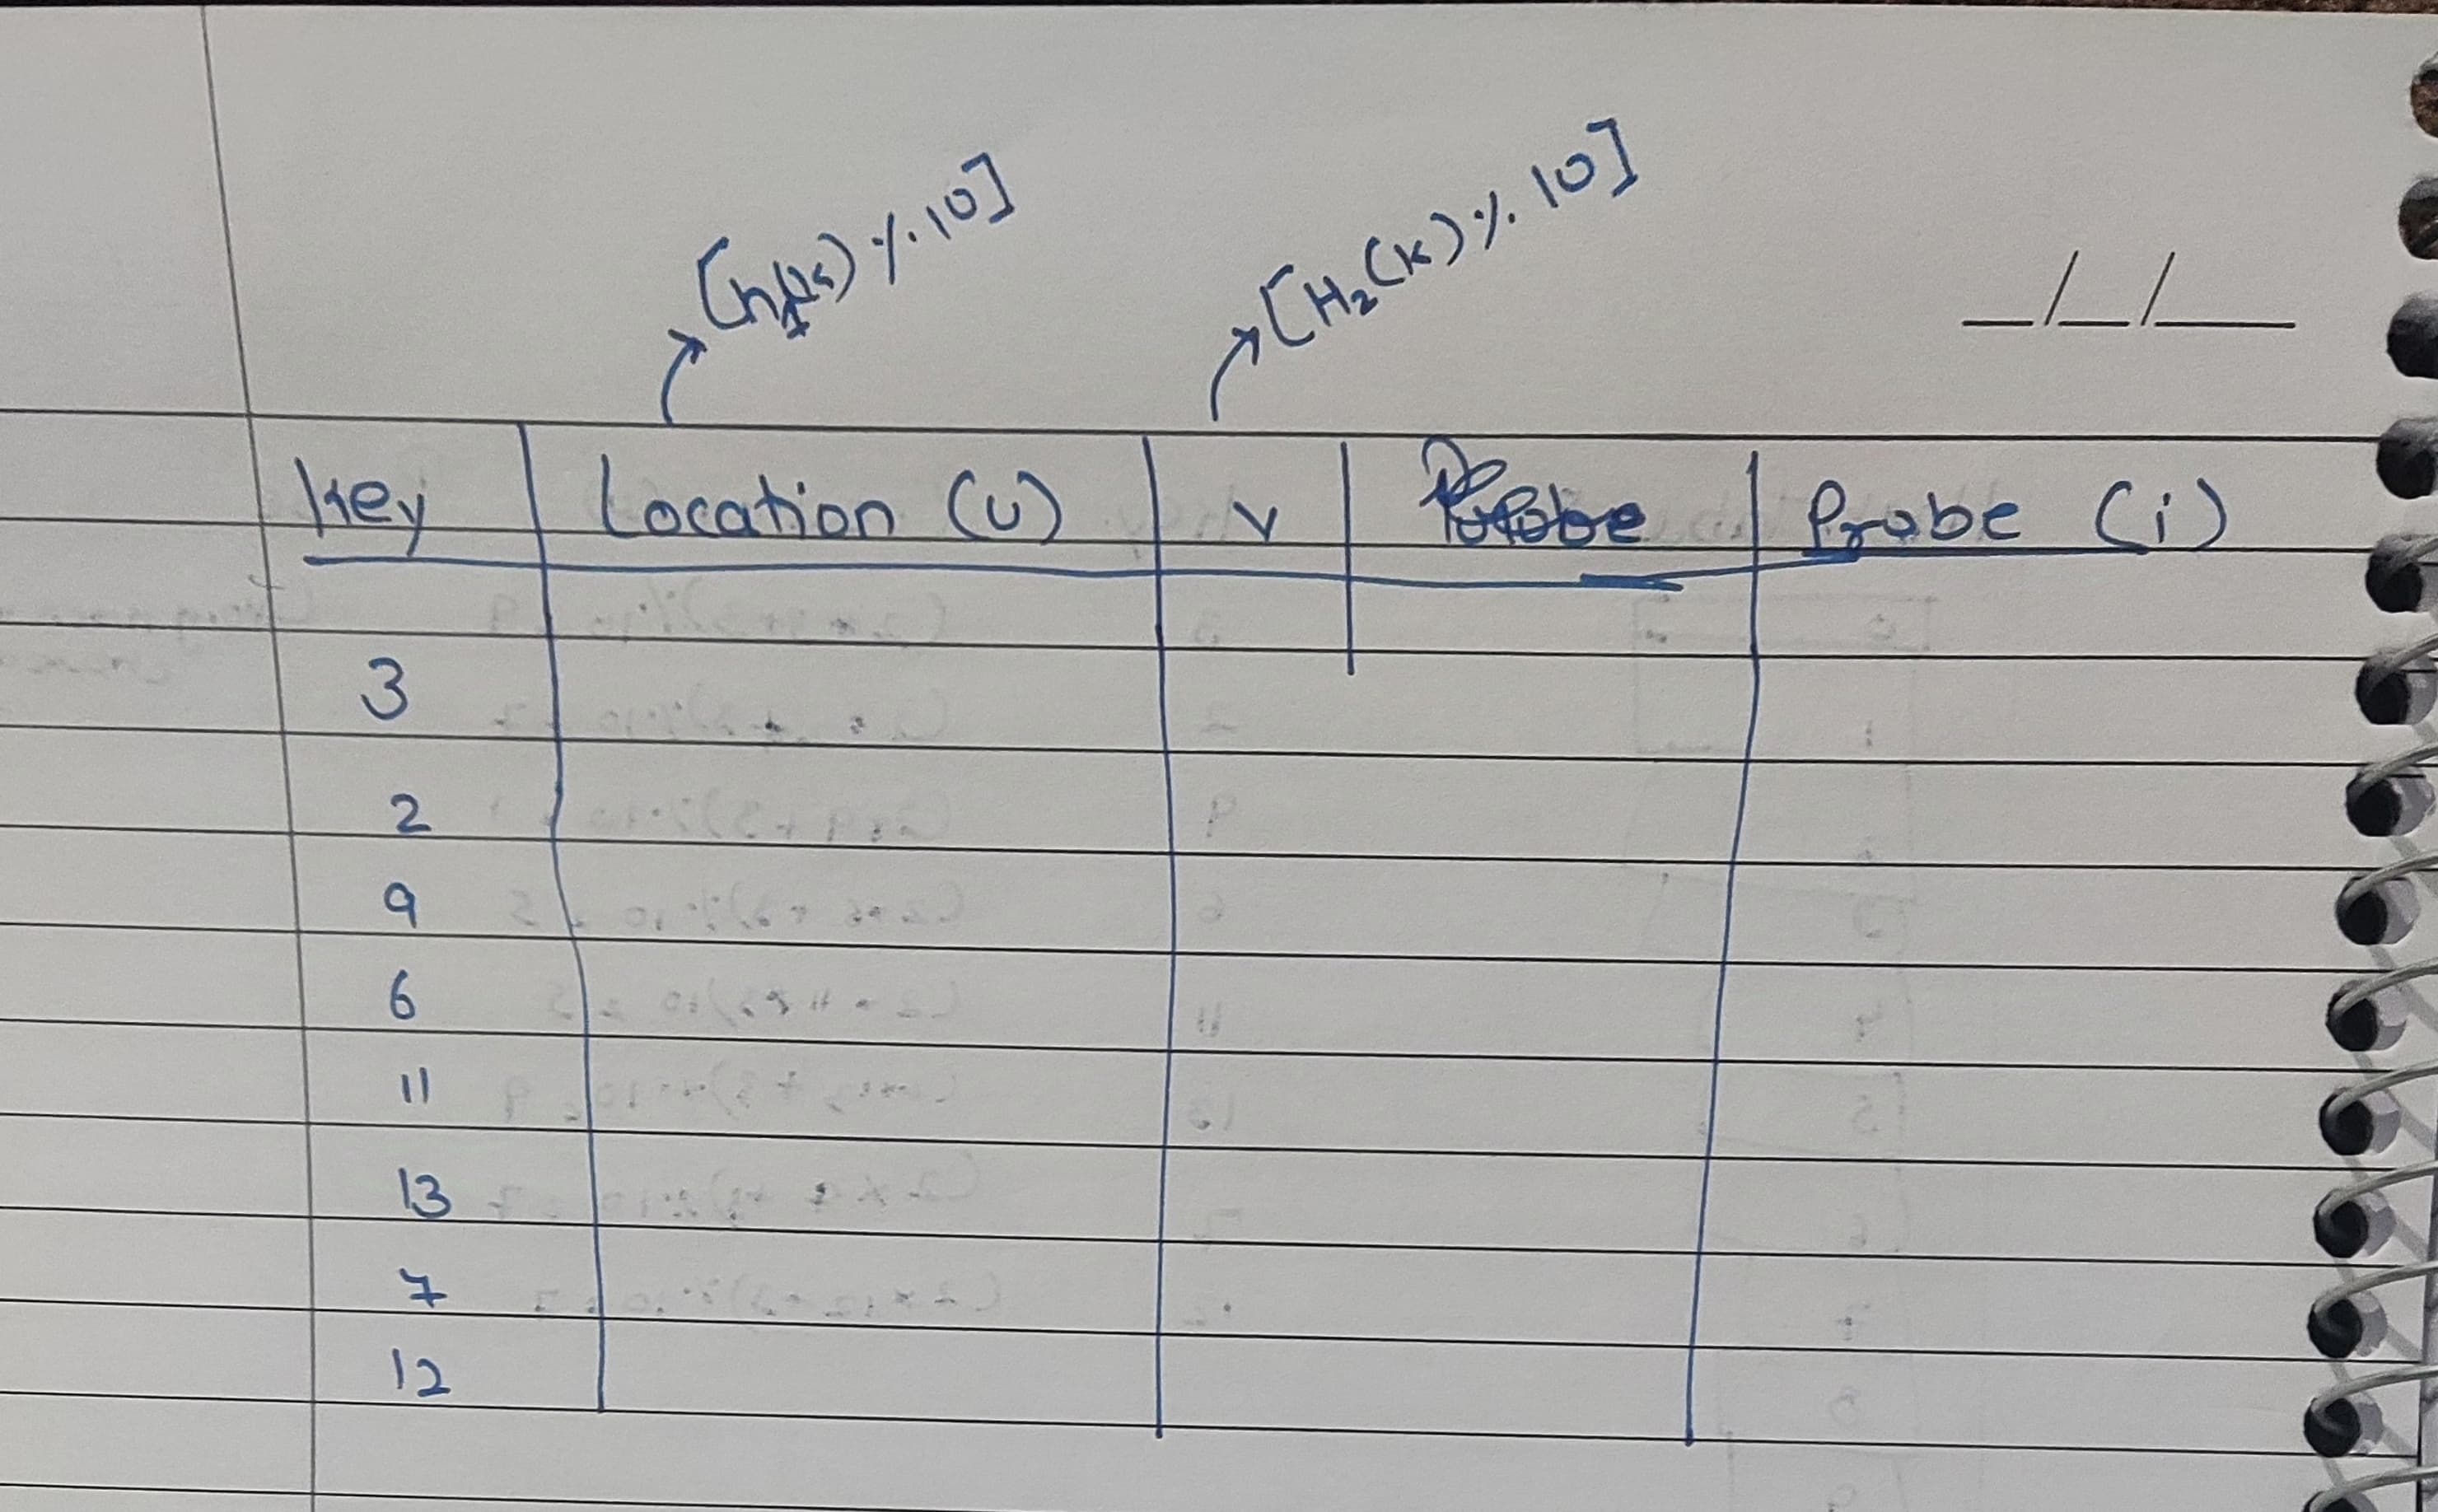 [h1(k) % 10] [H₂(K) % 10]
_/_/__
Key Location (u) v Probe (i)
3
2
9
6
11
13
7
12